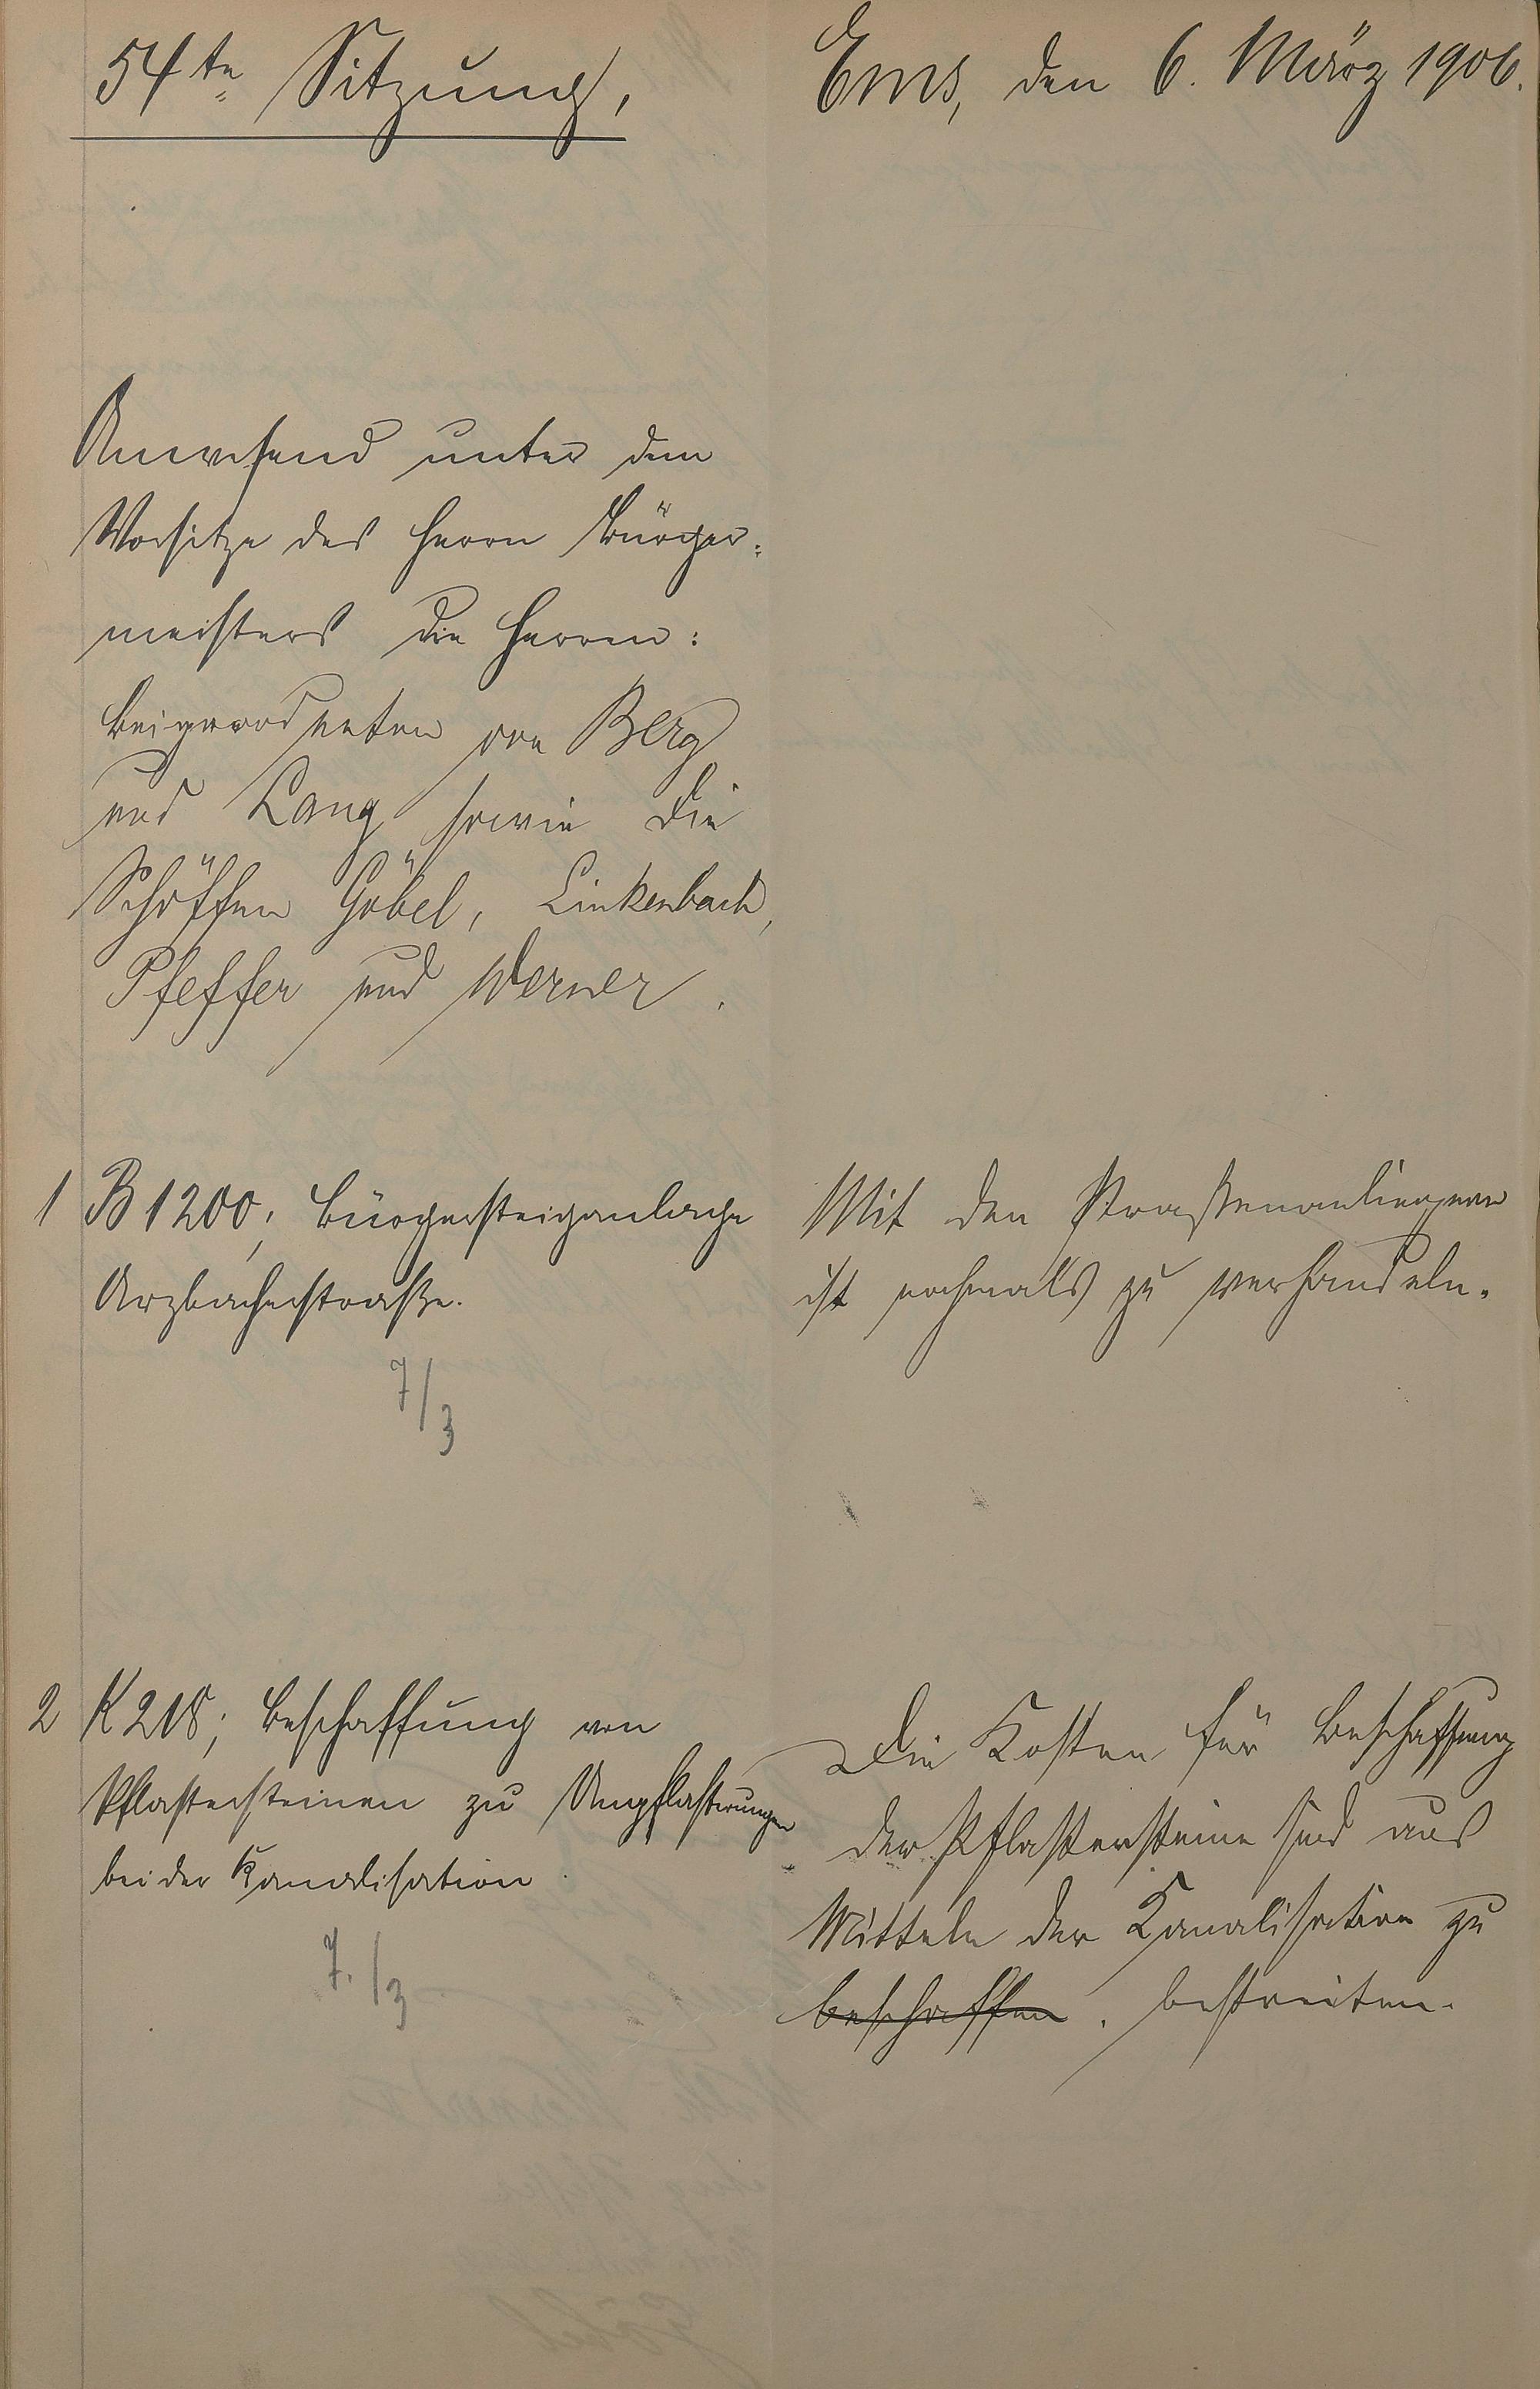 54te Sitzung,
Ems, den 6. März 1906.
Anwesend unter dem
Vorsitze des Herrn Bürger-
meisters die Herren:
Beigeordneten von Berg
und Lang sowie die
Schöffen Göbel, Linkenbach,
Pfeffer und Werner.
1 B 1200; Bürgersteiganlage
Arzbacherstraße.
7/3
Mit den Straßenanliegern
ist nochmals zu verhandeln.
2 K 218; Beschaffung von
Pflastersteinen zu Umpflasterungen
bei der Kanalisation
7./3
Die Kosten für Beschaffung
der Pflastersteine sind aus
Mitteln der Kanalisation zu
beschaffen. bestreiten.